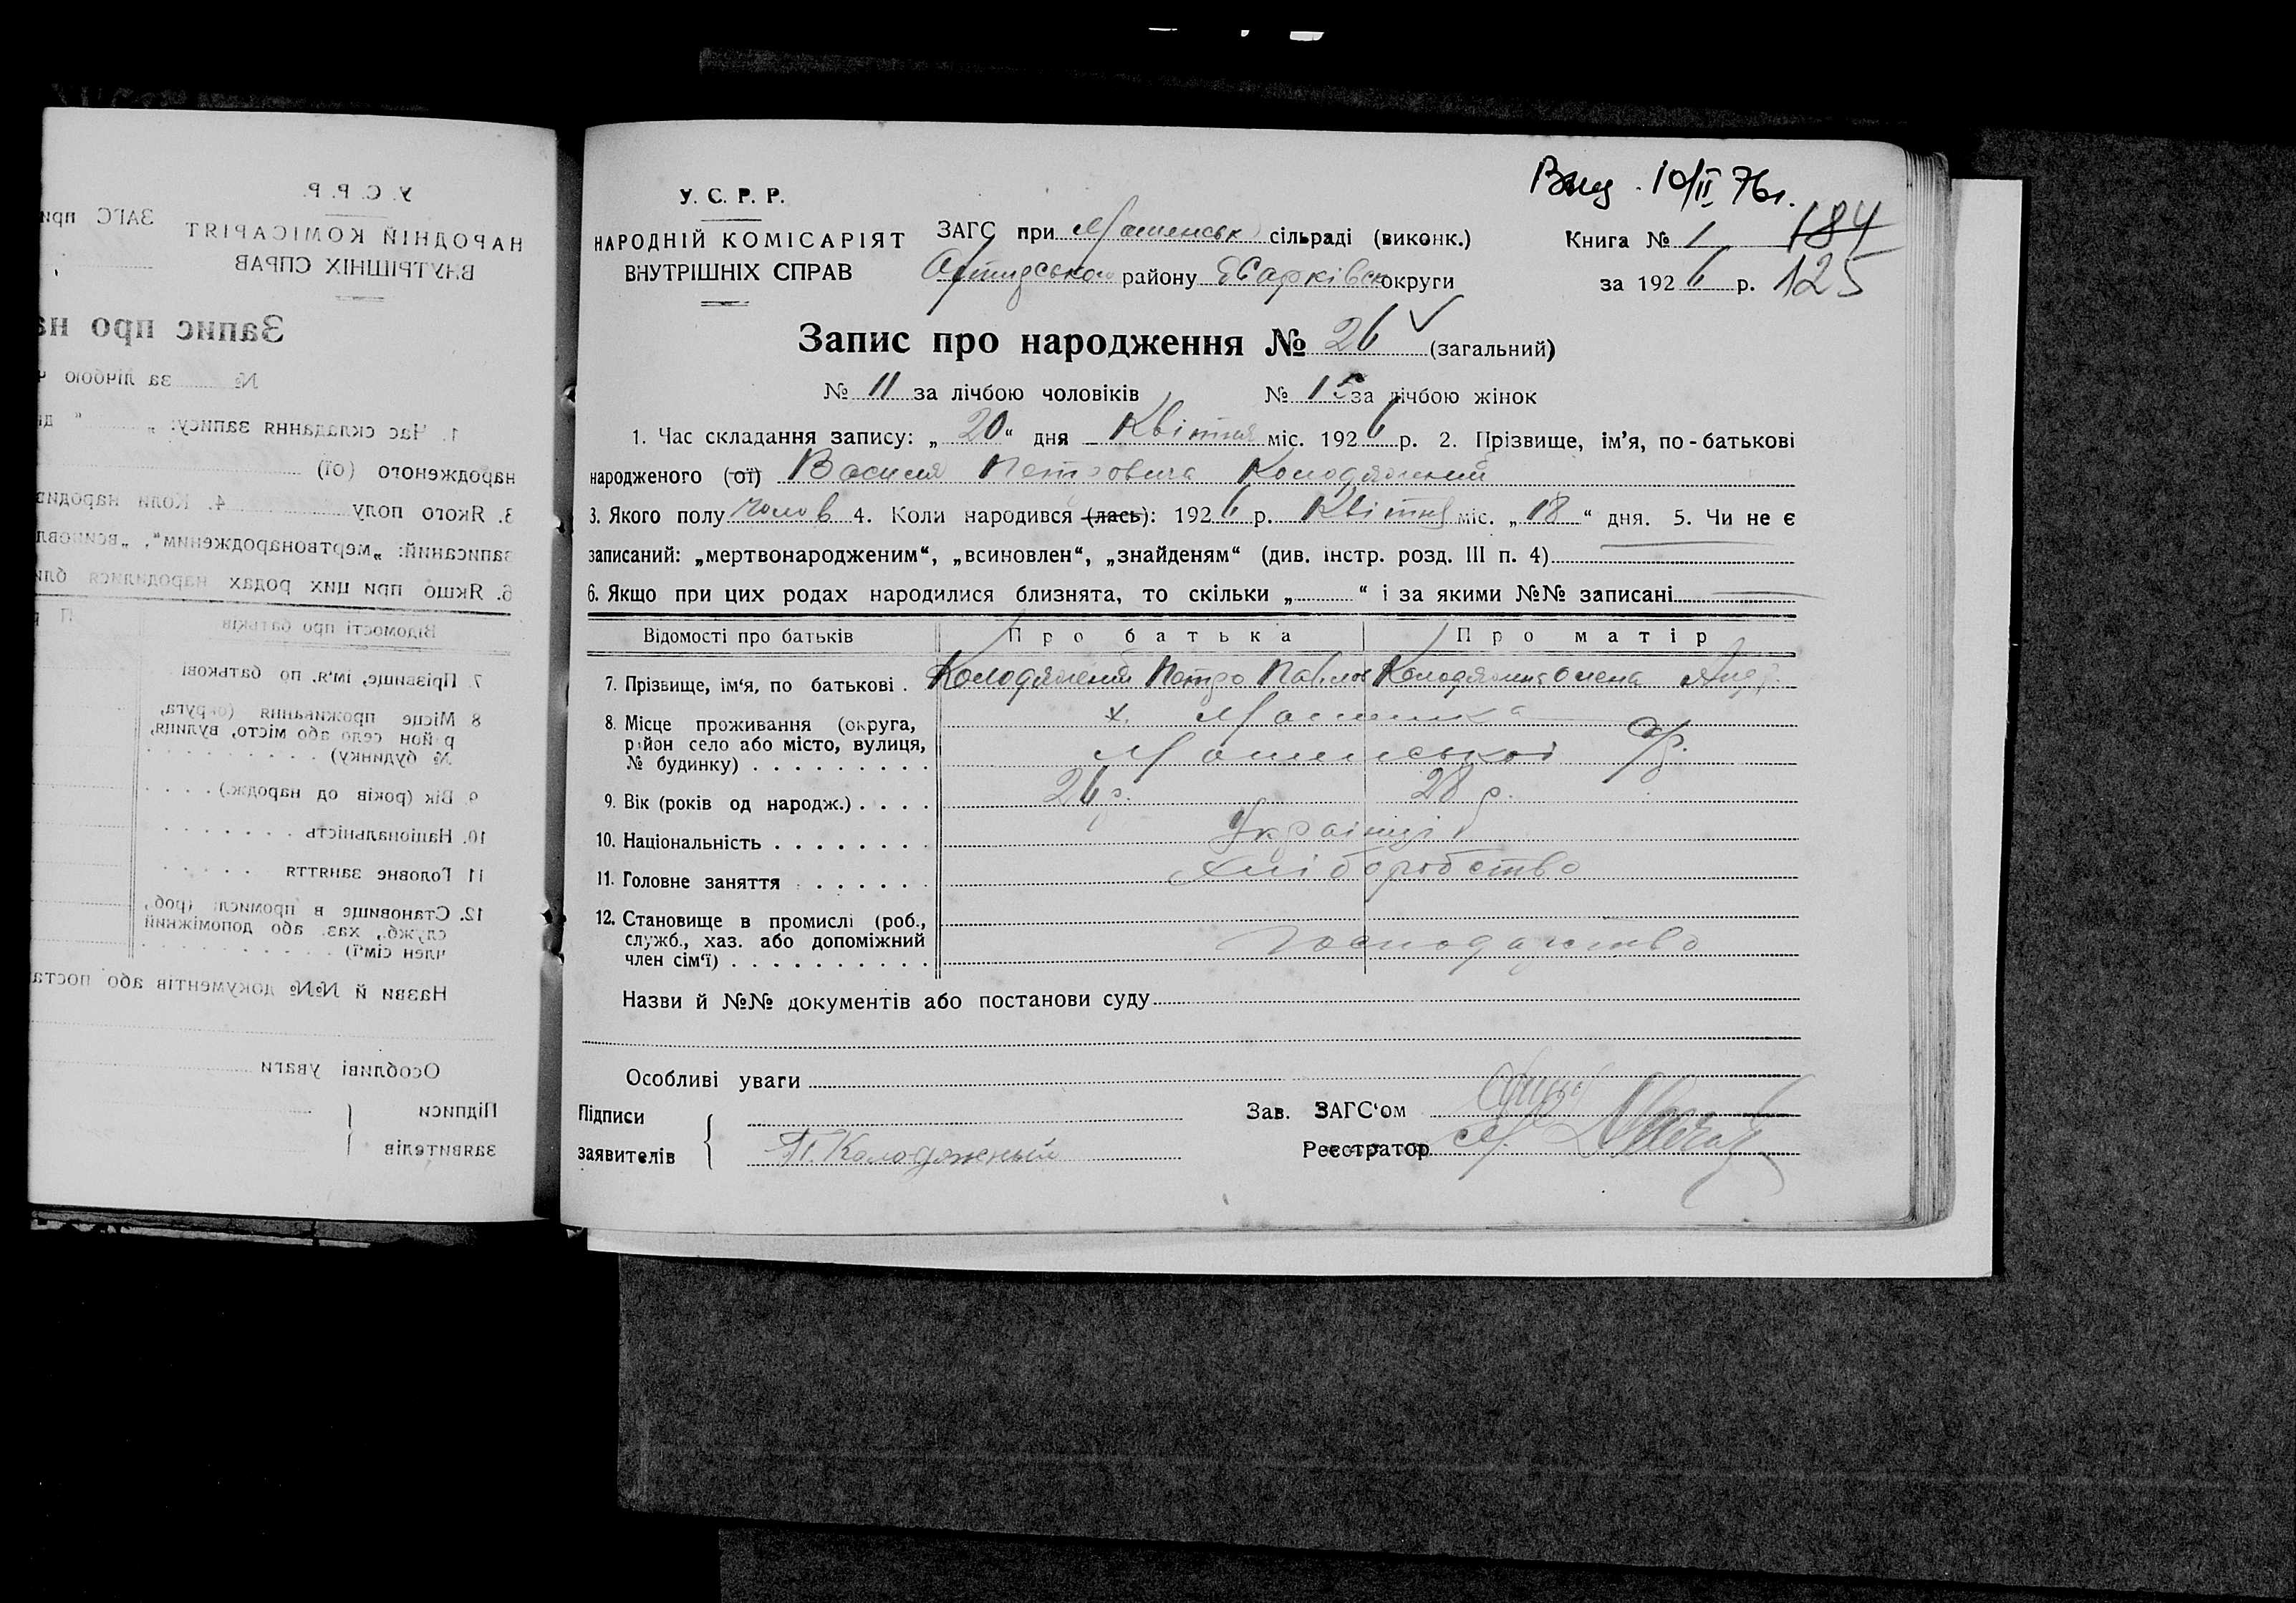 Вид. 10/II 76г.
У. С. Р. Р.
НАРОДНІЙ КОМІСАРІЯТ
ВНУТРІШНІХ СПРАВ
ЗАГС при сільраді (виконк.)
району Харківськ округи
Книга № 1 184
за 1926 р. 125
Запис про народження № 26 (загальний)
№ 11 за лічбою чоловіків № 15 за лічбою жінок
1. Час складання запису: „ 20 “ дня Квітня міс. 1926 р. 2. Прізвище, ім’я, по-батькові
народженого (ої) Василя Петровича Колодяжний
3. Якого полу чолов 4. Коли народився (лась): 1926 р. Квітня міс. „ 18 “ дня. 5. Чи не є
записаний: „мертвонародженим“, „всиновлен“, „знайденям“ (див. інстр. розд. III п. 4)
6. Якщо при цих родах народилися близнята, то скільки „ “ і за якими №№ записані
Відомості про батьків Про батька Про матір
7. Прізвище, ім‘я, по батькові . Колодяжний Петро Павлов Колодяжна Олена Андр.
8. Місце проживання (округа,
район село або місто, вулиця,
№ будинку) х.
с/р.
9. Вік (років од народж.) 26 р. 28 р.
10. Національність Українці
11. Головне заняття хліборобство
12. Становище в промислі (роб.,
служб., хаз. або допоміжний
член сім‘ї) господарство
Назви й №№ документів або постанови суду
Особливі уваги
Підписи
заявителів П. Колодяжный
Зав. ЗАГС‘ом
Реєстратор
У. С. Р. Р.
НАРОДНІЙ КОМІСАРІЯТ ЗАГС при
ВНУТРІШНІХ СПРАВ
Запис про на
№ за лічбою ч
1. Час складання запису: „ “ дн
народженого (ої)
3. Якого полу 4. Коли народив
записаний: „мертвонародженим“, „всиновл
6. Якщо при цих родах народилися бли
Відомості про батьків П р
7. Прізвище, ім‘я, по батькові
8 Місце проживання (округа,
район село або місто, вулиця,
№ будинку)
9. Вік (років од народж.)
10. Національність
11 Головне заняття
12. Становище в промислі (роб.,
служб., хаз. або допоміжний
член сім‘ї)
Назви й №№ документів або поста
Особливі уваги
Підписи
заявителів